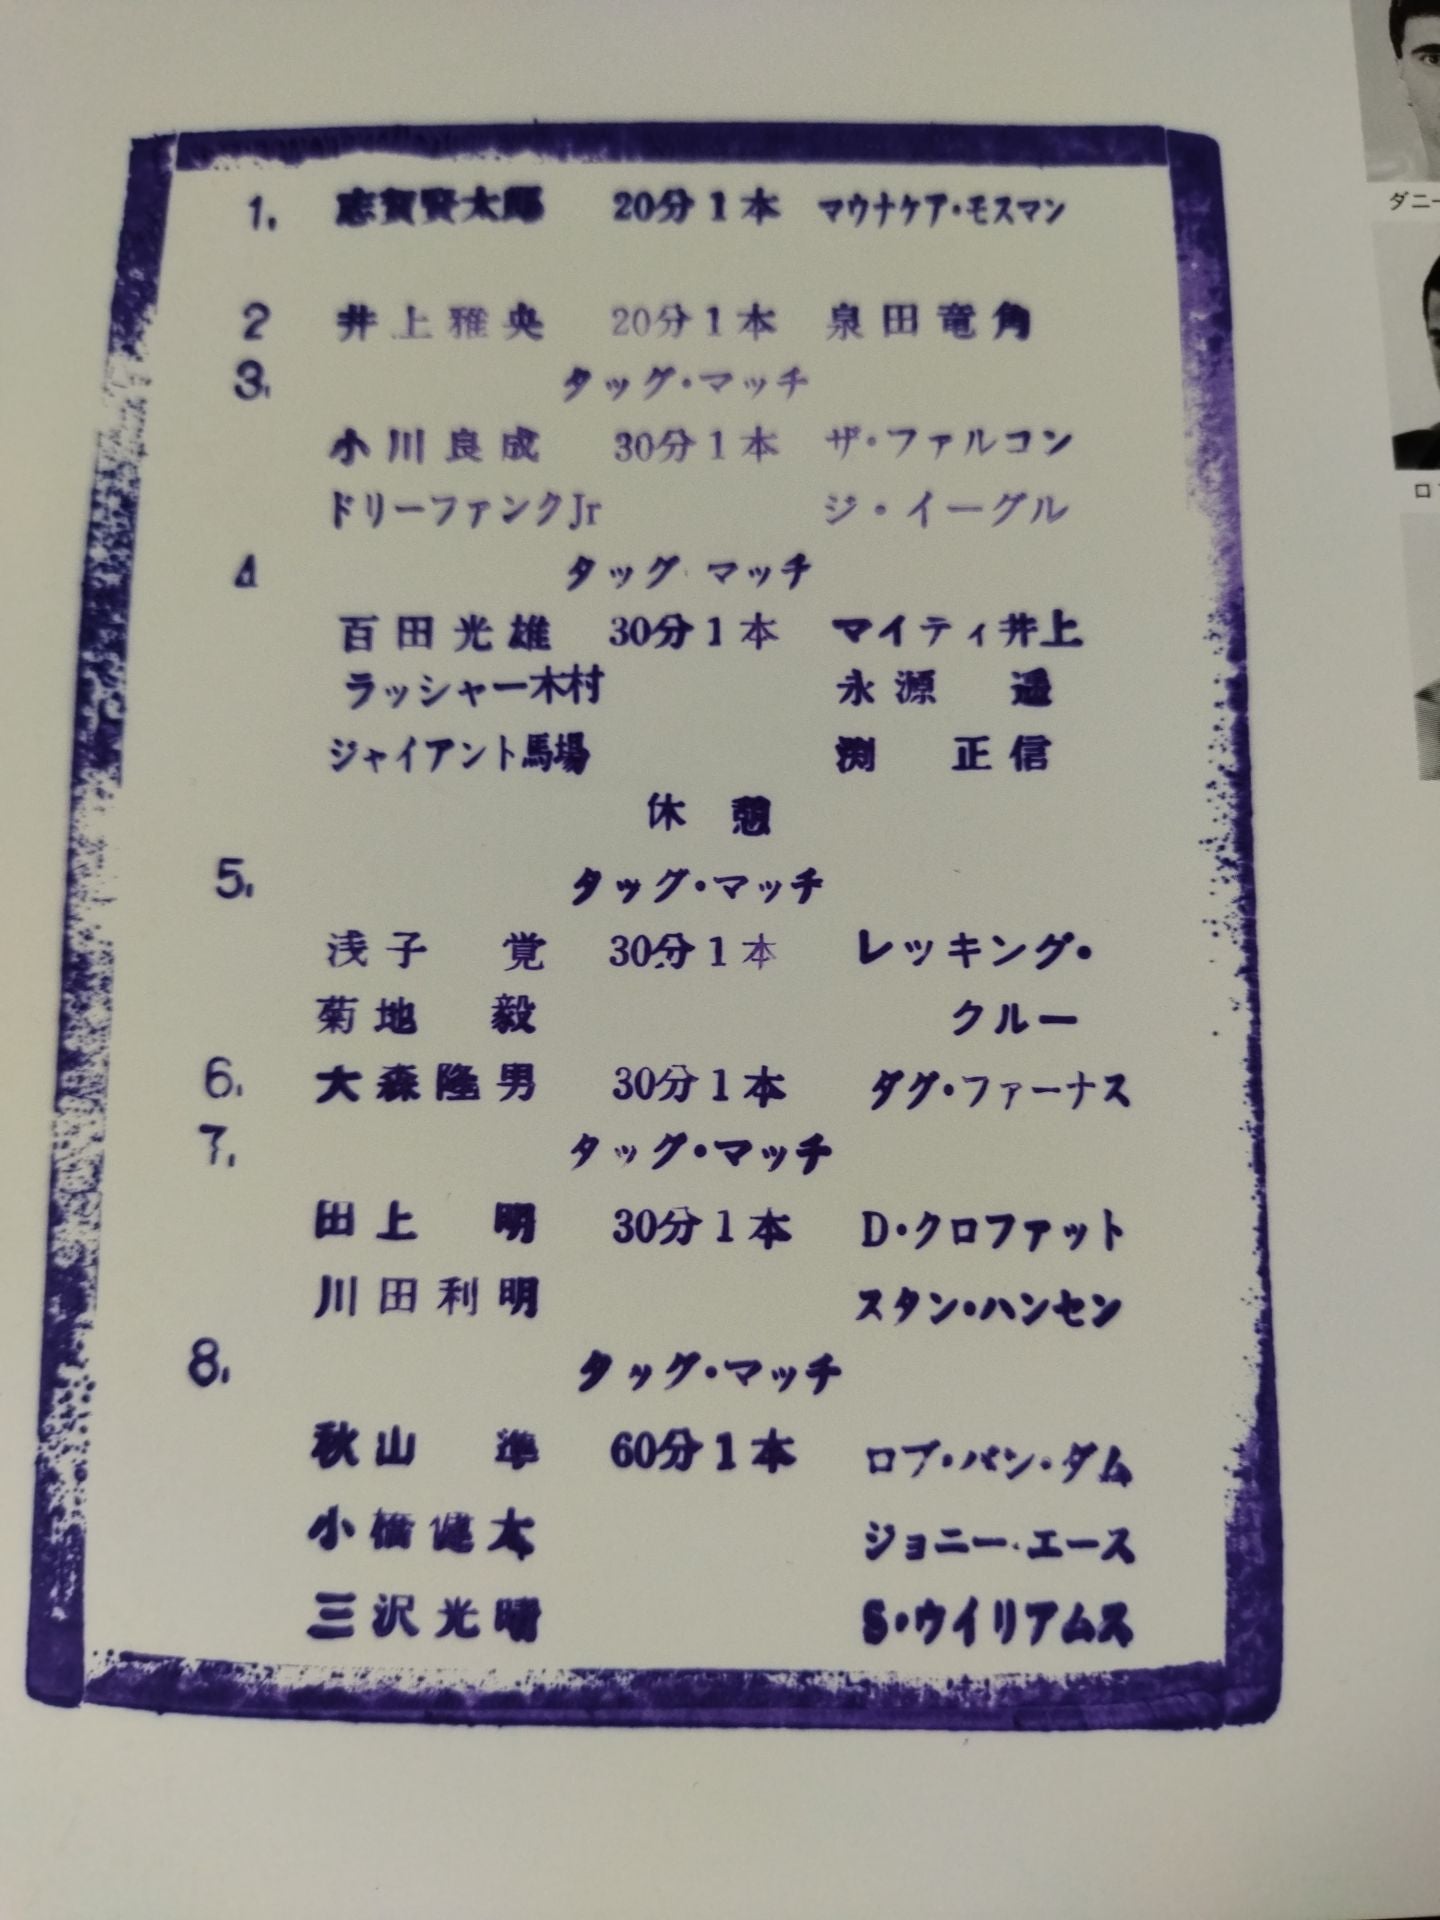 1. 志賀賢太郎 20分1本 マウナケア・モスマン
2 井上雅央 20分1本 泉田竜角
3. タッグ・マッチ
小川良成 30分1本 ザ・ファルコン
ドリーファンクJr ジ・イーグル
4 タッグ・マッチ
百田光雄 30分1本 マイティ井上
ラッシャー木村 永源 遥
ジャイアント馬場 渕 正信
休憩
5. タッグ・マッチ
浅子 覚 30分1本 レッキング・
菊地 毅 クルー
6. 大森隆男 30分1本 ダグ・ファーナス
7. タッグ・マッチ
田上 明 30分1本 D・クロファット
川田利明 スタン・ハンセン
8. タッグ・マッチ
秋山 準 60分1本 ロブ・バン・ダム
小橋健太 ジョニー・エース
三沢光晴 S・ウイリアムス
ダニー
ロ